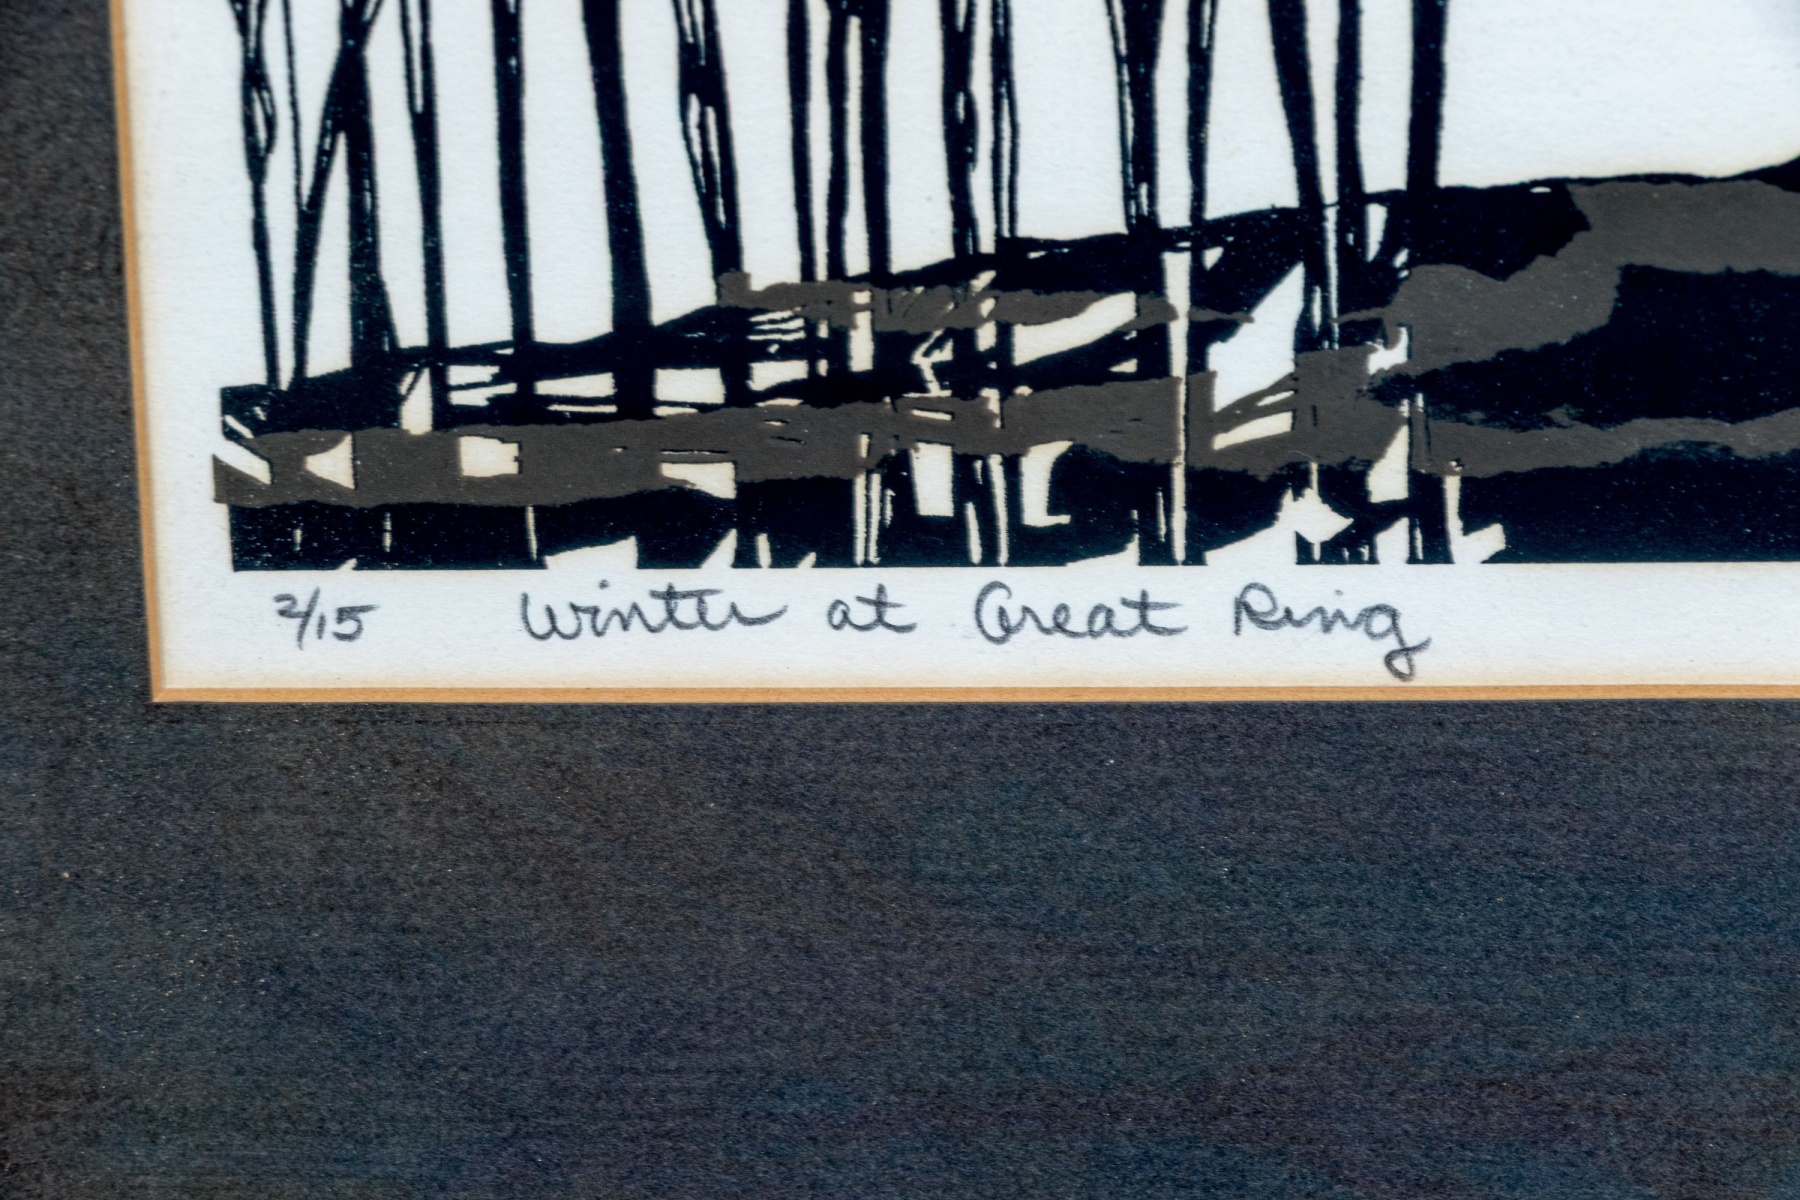 2/15 Winter at Great Ring